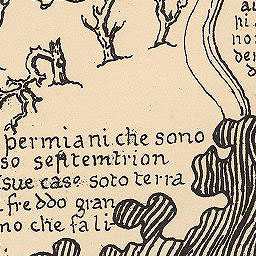 permiani che sono
so septemtrion
sue case soto terra
freddo gran
mo che fali